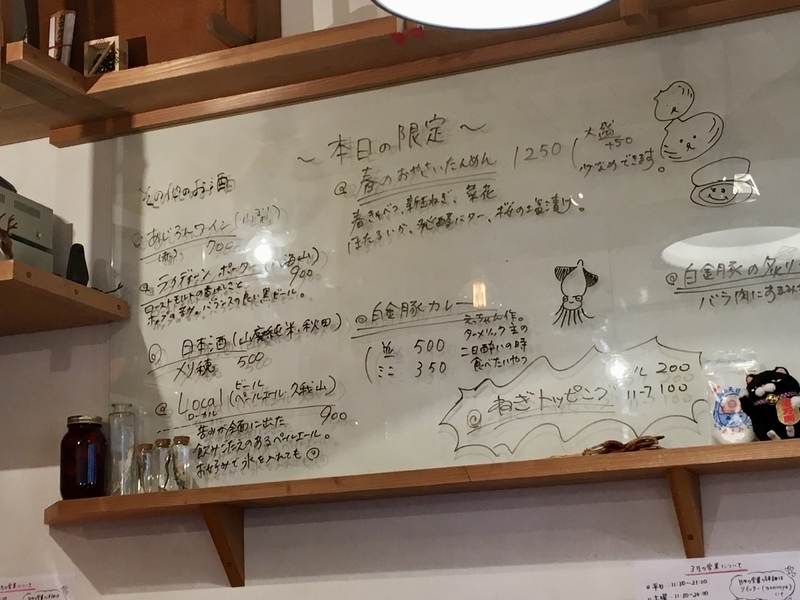 ～本日の限定～
春のおやさいたんめん 1250 (大盛 +50
少なめできます。
春きゃべつ、新玉ねぎ、菜花
ほたるいか、発酵バター、桜の塩漬け。
その他のお酒
あじろんワイン(山梨)
700
900
ローストモルトの香ばしさと
バランスの良い黒ビール。
日本酒(山廃純米、秋田)
500
Local (ビール
ペールエール 久我山)
ローカル
900
苦みが全面に出た
飲みごたえのあるペールエール。
お好みで氷を入れても
白金豚カレー
並 500
ミニ 350
ターメリック
二日酔いの時
食べたいやつ
ねぎトッピング
ル 200
ハーフ 100
白金豚の炙り
バラ肉に
3月の営業について
平日 11:30~21:00
土曜